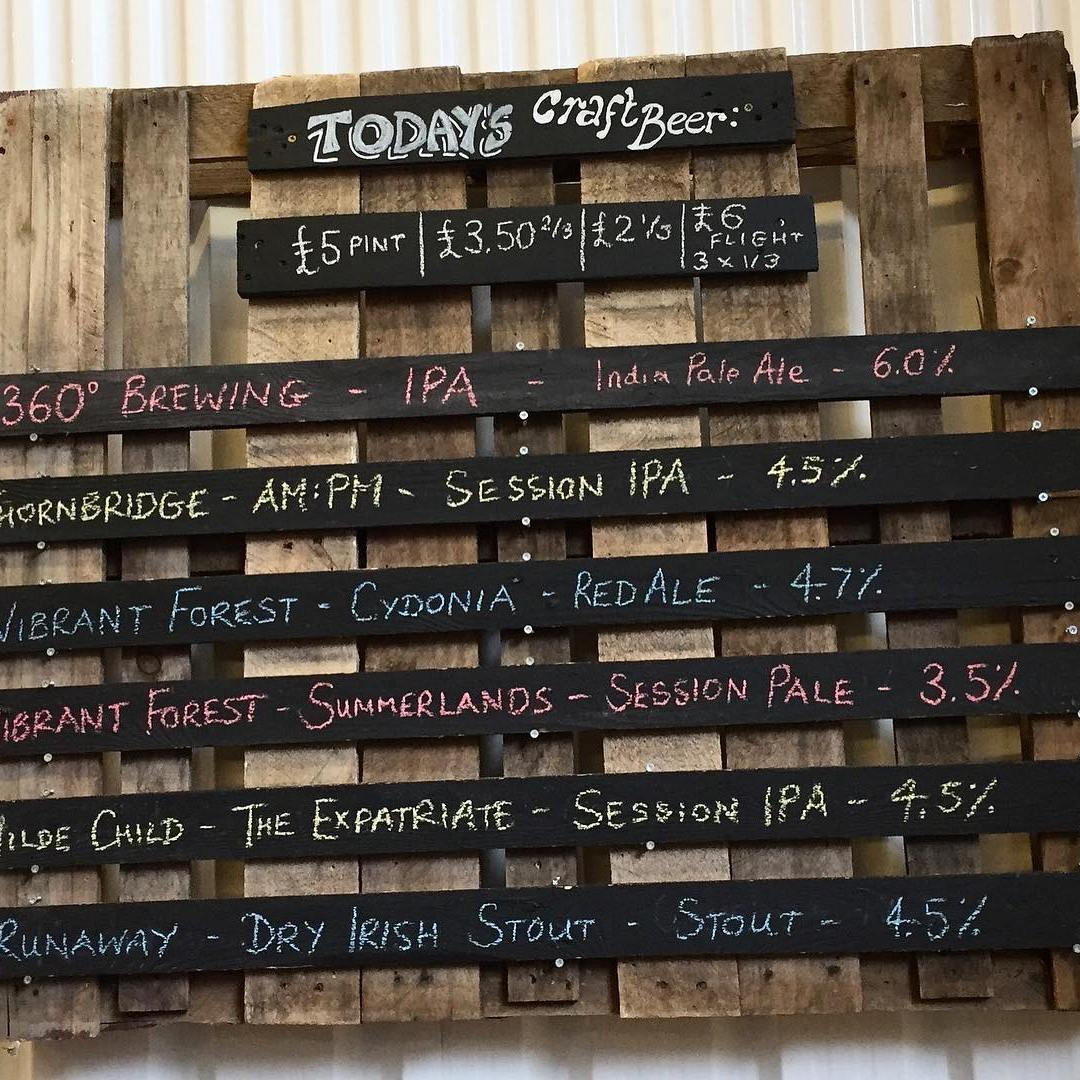 TODAY'S Craft Beer:
£5 PINT | £3.50 2/3 | £2 1/3 | £6 FLIGHT 3 x 1/3
360° BREWING - IPA - India Pale Ale - 6.0%
HORNBRIDGE - AM:PM - SESSION IPA - 4.5%
VIBRANT FOREST - CYDONIA - RED ALE - 4.7%
IBRANT FOREST - SUMMERLANDS - SESSION PALE - 3.5%
ILDE CHILD - THE EXPATRIATE - SESSION IPA - 4.5%
RUNAWAY - DRY IRISH STOUT - STOUT - 4.5%